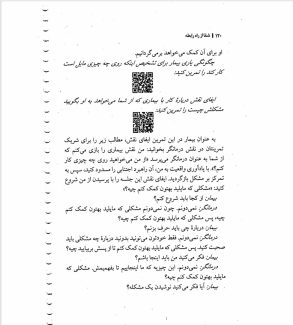 ۱۲۰ | شفا از راه رابطه
او برای آن کمک می‌خواهد برمی‌گردانیم.
چگونگی یاری بیمار برای تشخیص اینکه روی چه چیزی مایل است
کار کند را تمرین کنید:
ایفای نقش دربارهٔ کار با بیماری که از شما می‌خواهد به او بگویید
مشکلش چیست را تمرین کنید:
به عنوان بیمار در این تمرین ایفای نقش، مطالب زیر را برای شریک
تمرینتان در نقش درمانگر بخوانید: من نقش بیماری را بازی می‌کنم که
از شما به عنوان درمانگر می‌پرسد «از من می‌خواهید روی چه چیزی کار
کنم؟» با یادآوری واقعیت به من، آن راهبرد اجتنابی را مسدود کنید، سپس به
تمرکز بر مشکل بازگردید. ایفای نقش این جلسه را با پرسیدن از من شروع
کنید: «مشکلی که مایلید بهتون کمک کنم چیه؟»
بیمار: از کجا باید شروع کنم؟
درمانگر: نمی‌دونم. چون نمی‌دونم مشکلی که مایلید بهتون کمک کنم
چیه، پس مشکلی که مایلید بهتون کمک کنم چیه؟
بیمار: دربارهٔ چی باید حرف بزنم؟
درمانگر: نمی‌دونم. فقط خودتون می‌تونید بدونید دربارهٔ چه مشکلی باید
صحبت کنید. پس مشکلی که مایلید بهتون کمک کنم تا از پسش بربیایید چیه؟
بیمار: فکر می‌کنید من باید اینجا باشم؟
درمانگر: نمی‌دونم. این چیزیه که ما اینجاییم تا بفهمیمش. مشکلی که
مایلید بهتون کمک کنم چیه؟
بیمار: آیا فکر می‌کنید نوشیدن یک مشکله؟